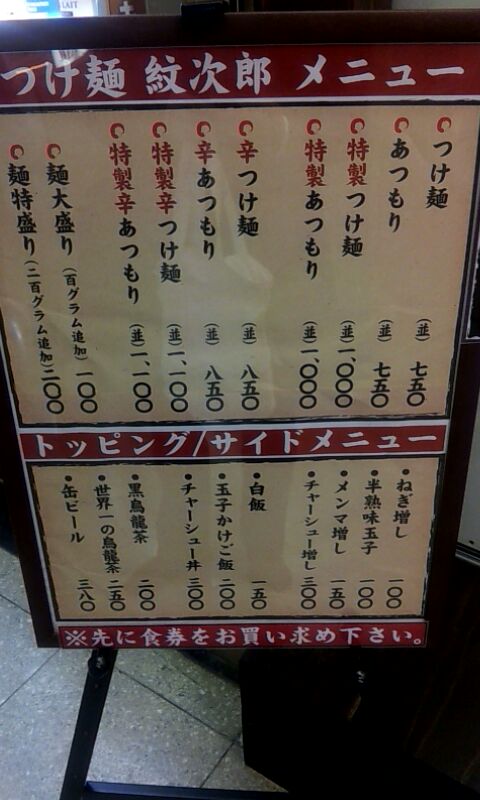 つけ麺 紋次郎 メニュー
つけ麺 (並) 七五〇
あつもり (並) 七五〇
特製つけ麺 (並) 一、〇〇〇
特製あつもり (並) 一、〇〇〇
辛つけ麺 (並) 八五〇
辛あつもり (並) 八五〇
特製辛つけ麺 (並) 一、一〇〇
特製辛あつもり (並) 一、一〇〇
麺大盛り (百グラム追加) 一〇〇
麺特盛り (二百グラム追加) 二〇〇
トッピング/サイドメニュー
ねぎ増し 一〇〇
半熟味玉子 一〇〇
メンマ増し 一五〇
チャーシュー増し 三〇〇
白飯 一五〇
玉子かけご飯 二〇〇
チャーシュー丼 三〇〇
黒烏龍茶 二〇〇
世界一の烏龍茶 二五〇
缶ビール 三八〇
※先に食券をお買い求め下さい。